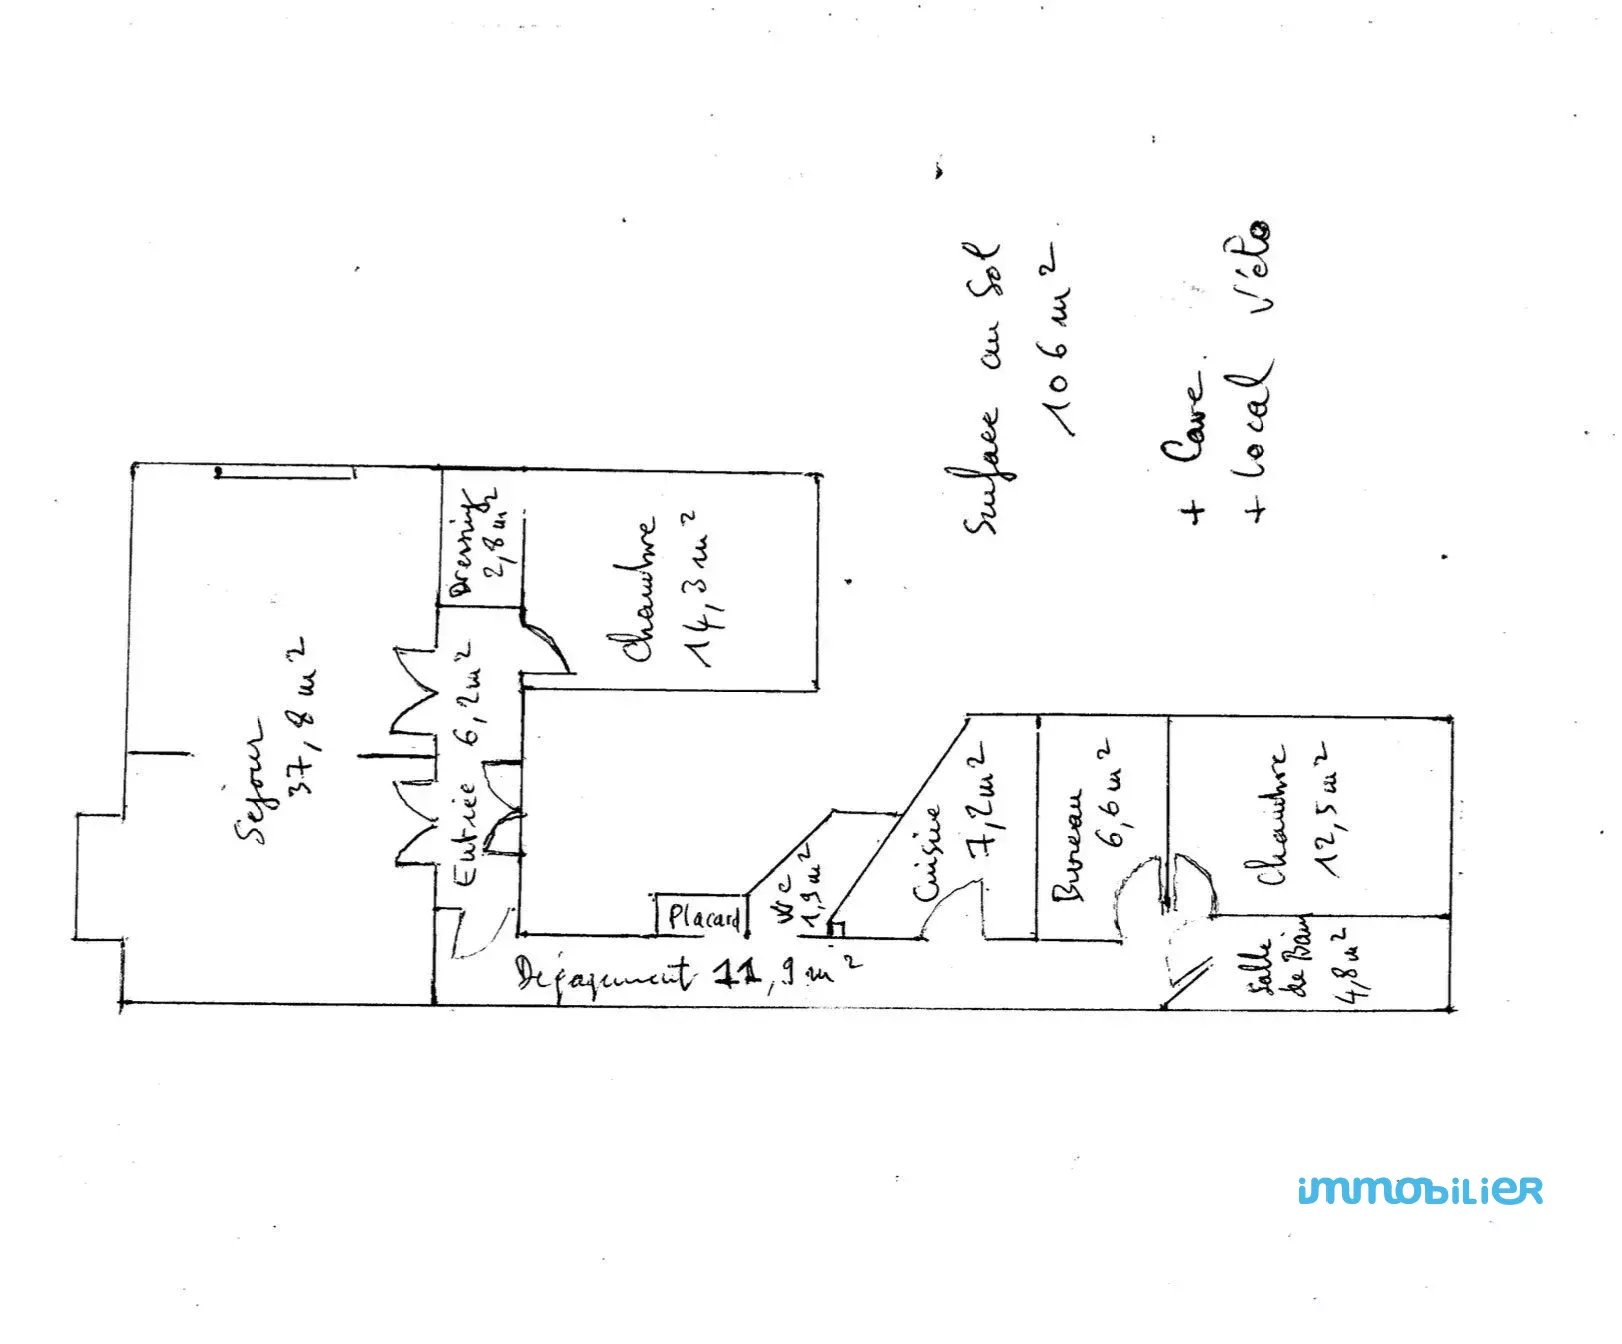 Séjour
37,8 m²
Dressing
2,8 m²
Entrée 6,2 m²
Chambre
14,3 m²
Placard
wc
1,9 m²
Dégagement 11,9 m²
Cuisine
7,2 m²
Bureau
6,6 m²
Chambre
12,5 m²
Salle
de Bain
4,8 m²
Surface au Sol
106 m²
+ Cave.
+ Local Vélo
immobilier